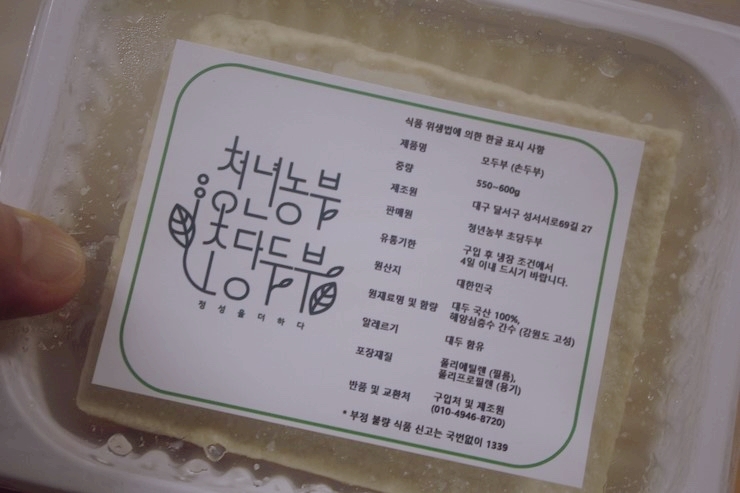 청년농부
초담두부
정성을더하다
식품 위생법에 의한 한글 표시 사항
제품명 모두부 (손두부)
중량 550~600g
제조원 대구 달서구 성서서로69길 27
판매원 청년농부 초담두부
유통기한 구입 후 냉장 조건에서
4일 이내 드시기 바랍니다.
원산지 대한민국
원재료명 및 함량 대두 국산 100%,
해양심층수 간수 (강원도 고성)
알레르기 대두 함유
포장재질 폴리에틸렌 (필름),
폴리프로필렌 (용기)
반품 및 교환처 구입처 및 제조원
(010-4946-8720)
* 부정 불량 식품 신고는 국번없이 1339